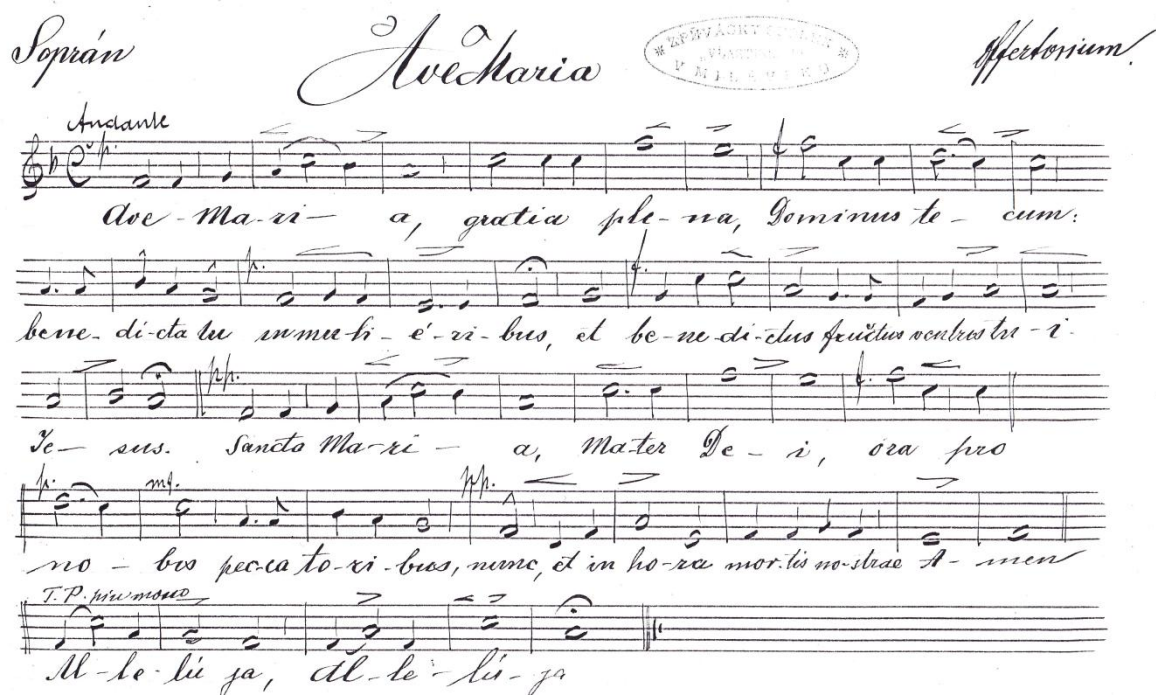 Soprán Ave Maria Offertorium.
ZPĚVÁCKÝ SPOLEK
V MILEVSKU
Andante
p.
Ave - Ma - ri - a, gratia ple - na, Dominus te - cum:
p. f.
bene - di - cta tu in mu - li - é - ri - bus, et be - ne - di - ctus fructus ventris tu - i.
pp. f.
Je - sus. Sancta Ma - ri - a, Mater De - i, ora pro
p. mf. pp.
no - bis pec - ca to - ri - bus, nunc, et in ho - ra mor - tis no - strae A - men
T. P. piu mosso
Al - le - lú ja, Al - le - lú - ja